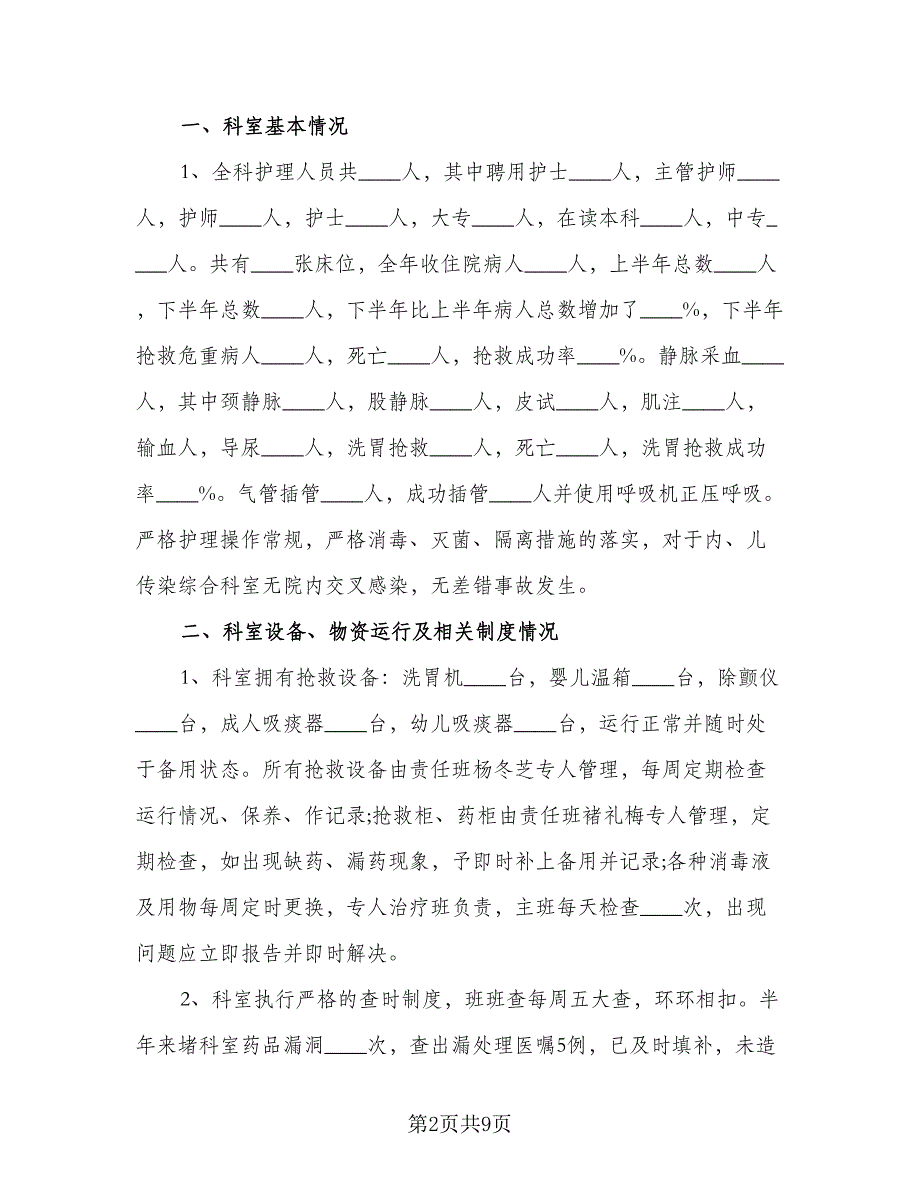 一、科室基本情况
1、全科护理人员共____人，其中聘用护士____人，主管护师____
人，护师____人，护士____人，大专____人，在读本科____人，中专_
___人。共有____张床位，全年收住院病人____人，上半年总数____人
，下半年总数____人，下半年比上半年病人总数增加了____%，下半年
抢救危重病人____人，死亡____人，抢救成功率____%。静脉采血____
人，其中颈静脉____人，股静脉____人，皮试____人，肌注____人，
输血人，导尿____人，洗胃抢救____人，死亡____人，洗胃抢救成功
率____%。气管插管____人，成功插管____人并使用呼吸机正压呼吸。
严格护理操作常规，严格消毒、灭菌、隔离措施的落实，对于内、儿
传染综合科室无院内交叉感染，无差错事故发生。
二、科室设备、物资运行及相关制度情况
1、科室拥有抢救设备：洗胃机____台，婴儿温箱____台，除颤仪
____台，成人吸痰器____台，幼儿吸痰器____台，运行正常并随时处
于备用状态。所有抢救设备由责任班杨冬芝专人管理，每周定期检查
运行情况、保养、作记录;抢救柜、药柜由责任班褚礼梅专人管理，定
期检查，如出现缺药、漏药现象，予即时补上备用并记录;各种消毒液
及用物每周定时更换，专人治疗班负责，主班每天检查____次，出现
问题应立即报告并即时解决。
2、科室执行严格的查时制度，班班查每周五大查，环环相扣。半
年来堵科室药品漏洞____次，查出漏处理医嘱5例，已及时填补，未造
第2页共9页